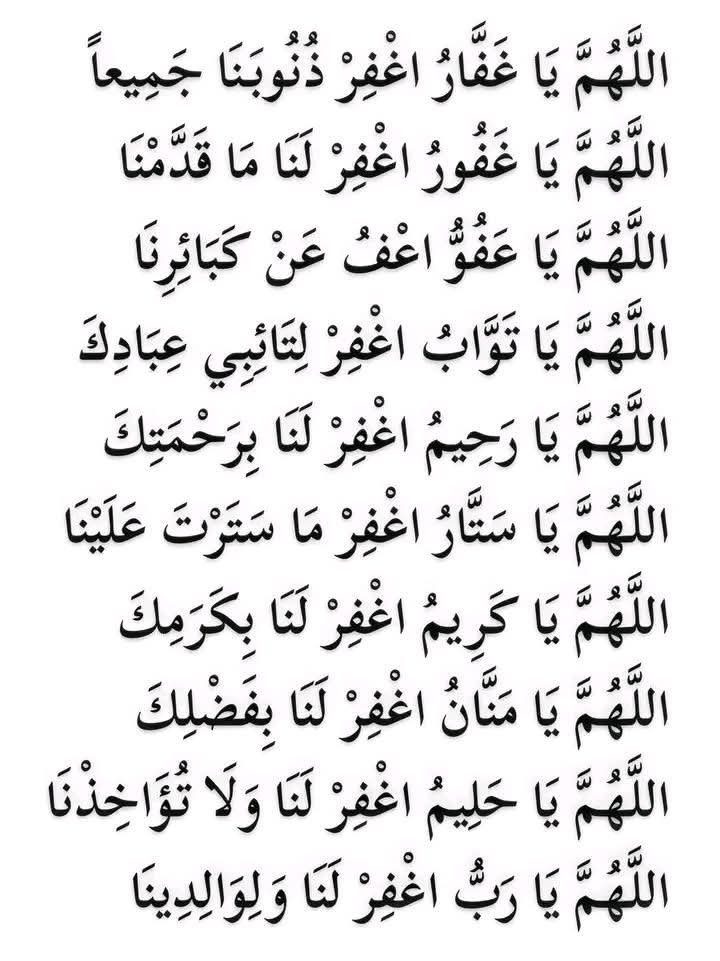 اللَّهُمَّ يَا غَفَّارُ اغْفِرْ ذُنُوبَنَا جَمِيعاً
اللَّهُمَّ يَا غَفُورُ اغْفِرْ لَنَا مَا قَدَّمْنَا
اللَّهُمَّ يَا عَفُوُّ اعْفُ عَنْ كَبَائِرِنَا
اللَّهُمَّ يَا تَوَّابُ اغْفِرْ لِتَائِبِي عِبَادِكَ
اللَّهُمَّ يَا رَحِيمُ اغْفِرْ لَنَا بِرَحْمَتِكَ
اللَّهُمَّ يَا سَتَّارُ اغْفِرْ مَا سَتَرْتَ عَلَيْنَا
اللَّهُمَّ يَا كَرِيمُ اغْفِرْ لَنَا بِكَرَمِكَ
اللَّهُمَّ يَا مَنَّانُ اغْفِرْ لَنَا بِفَضْلِكَ
اللَّهُمَّ يَا حَلِيمُ اغْفِرْ لَنَا وَلَا تُؤَاخِذْنَا
اللَّهُمَّ يَا رَبُّ اغْفِرْ لَنَا وَلِوَالِدِينَا